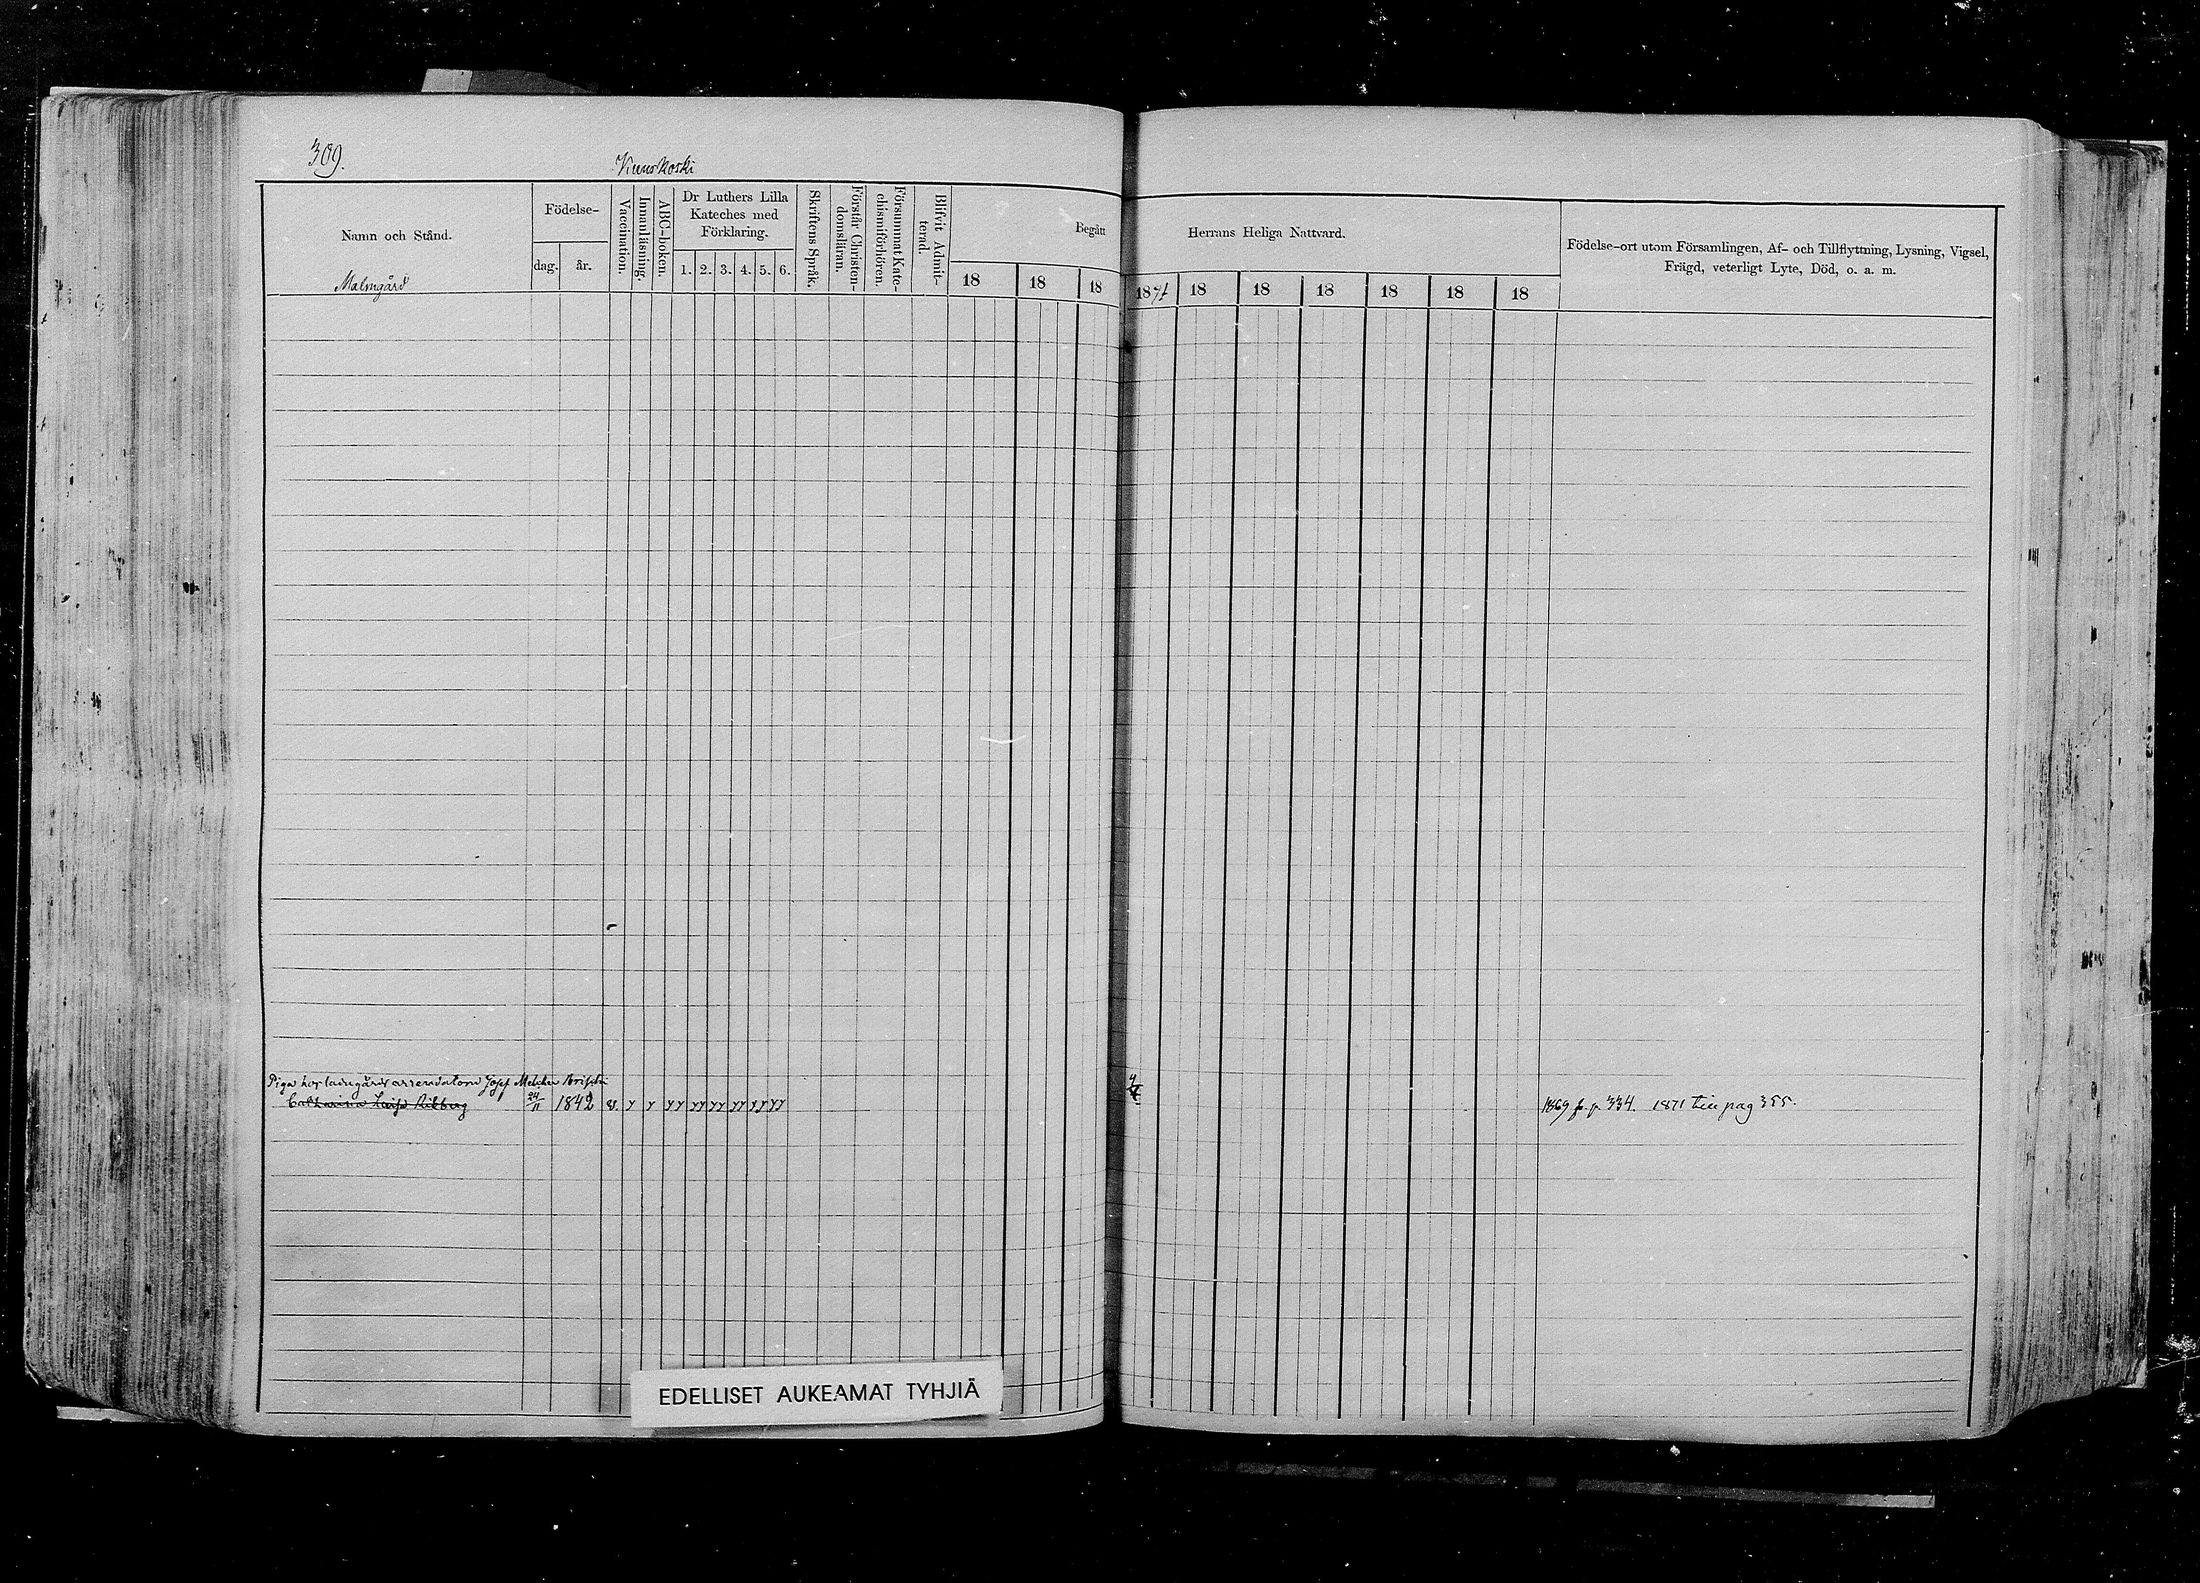 309.
Kuuskoski
Namn och Stånd.
Malmgård
Födelse-
dag. år.
Vaccination.
Innanläsning.
ABC-boken.
Dr Luthers Lilla
Kateches med
Förklaring.
1. 2. 3. 4. 5. 6.
Skriftens Språk.
Förstår Christen-
domsläran.
Försummat Kate-
chismiförhören.
Blifvit Admit-
terad.
Begått Herrans Heliga Nattvard.
18 18 18 1871 18 18 18 18 18 18
Födelse-ort utom Församlingen, Af- och Tillflyttning, Lysning, Vigsel,
Frägd, veterligt Lyte, Död, o. a. m.
Piga hos ladugårds arrendatorn Josef Melcher
Catharina 24/11 1842 v. y y yy yy yy yy yy yy 1869 f. p. 334. 1871 till pag 355.
EDELLISET AUKEAMAT TYHJIÄ